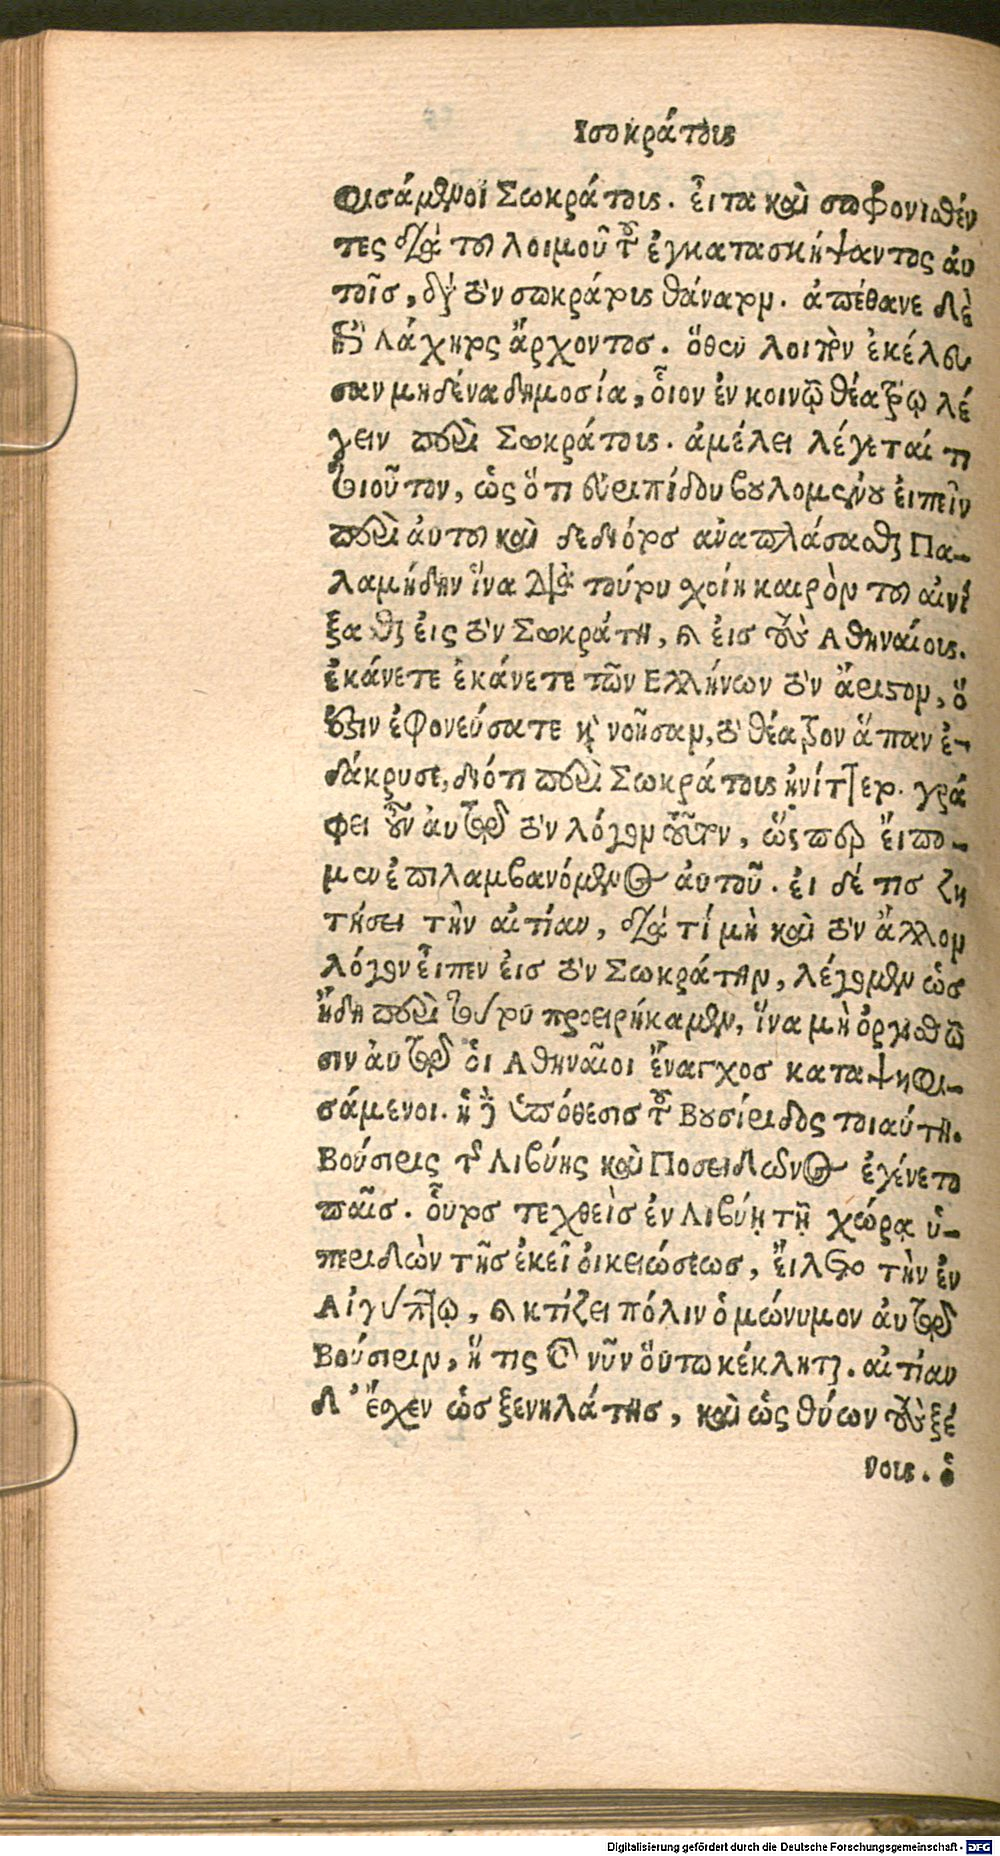 Ισοκράτους
φισάμενοι Σωκράτους. εἶτα καὶ σωφρονισθέν
τες διὰ τοῦ λοιμοῦ τοῦ ἐγκατασκήψαντος αὐ
τοῖς, διὰ τὸν σωκράτους θάνατον. ἀπέθανε δὲ
ἐπὶ Λάχητος ἄρχοντος. ὅθεν λοιπὸν ἐκέλευ
σαν μηδένα δημοσία, οἷον ἐν κοινῷ θεάτρῳ λέ
γειν περὶ Σωκράτους. ἀμέλει λέγεταί τι
τοιοῦτον, ὡς ὅτι εὐριπίδου βουλομένου εἰπεῖν
περὶ αὐτοῦ καὶ δεδιότος ἀναπλάσασθαι Πα-
λαμήδην ἵνα διὰ τούτου σχοίη καιρὸν τοῦ αἰνί
ξασθαι εἰς τὸν Σωκράτη, καὶ εἰς τοὺς Αθηναίους.
ἐκάνετε ἐκάνετε τῶν Ελλήνων τὸν ἄριστον, ὅ
ἐστιν ἐφονεύσατε καὶ νοῆσαν, τὸ θέατρον ἅπαν ἐ-
δάκρυσε, διότι περὶ Σωκράτους ᾐνίττετο. γρά
φει οὖν αὐτῷ τὸν λόγον τοῦτον, ὥσπερ εἴπο-
μεν ἐπιλαμβανόμενος αὐτοῦ. εἰ δέ τις ζη
τήσει τὴν αἰτίαν, διὰ τί μὴ καὶ τὸν ἄλλον
λόγον εἶπεν εἰς τὸν Σωκράτην, λέγομεν ὡς
ἤδη περὶ τούτου προειρήκαμεν, ἵνα μὴ ὀργισθῶ
σιν αὐτῷ οἱ Αθηναῖοι ἔναγχος καταψηφι-
σάμενοι. ἡ δὲ ὑπόθεσις τοῦ Βουσίριδος τοιαύτη.
Βούσιρις τῆς Λιβύης καὶ Ποσειδῶνος ἐγένετο
παῖς. οὗτος τεχθεὶς ἐν Λιβύῃ τῇ χώρᾳ ὑ-
περιδὼν τῆς ἐκεῖ οἰκειώσεως, εἵλετο τὴν ἐν
Αἰγύπτῳ, καὶ κτίζει πόλιν ὁμώνυμον αὐτῷ
Βούσιριν, ἥ τις καὶ νῦν οὕτω κέκληται. αἰτίαν
δ' ἔσχεν ὡς ξενηλάτης, καὶ ὡς θύων τοὺς ξέ
νους. ὁ
Digitalisierung gefördert durch die Deutsche Forschungsgemeinschaft - DFG